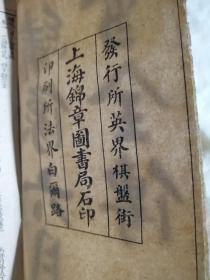 發行所英界棋盤街
上海錦章圖書局石印
印刷所法界白爾路